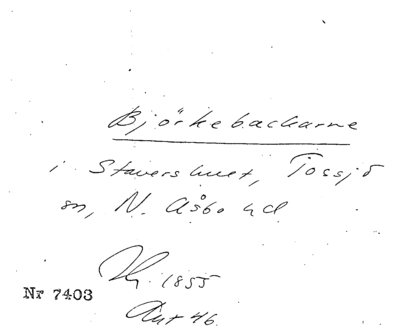 Björkebackarne
i Stavershuet, Tossjö
sn, N. Åsbo hd
1855
Nr 7403
Ant 46.